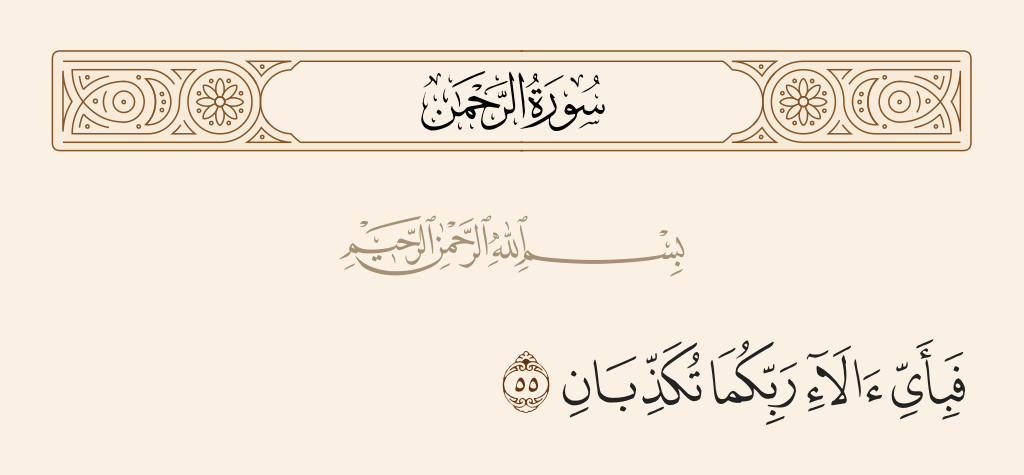 سُورَةُ الرَّحْمَٰن
بِسْمِ ٱللَّهِ ٱلرَّحْمَٰنِ ٱلرَّحِيمِ
فَبِأَىِّ ءَالَآءِ رَبِّكُمَا تُكَذِّبَانِ ٥٥